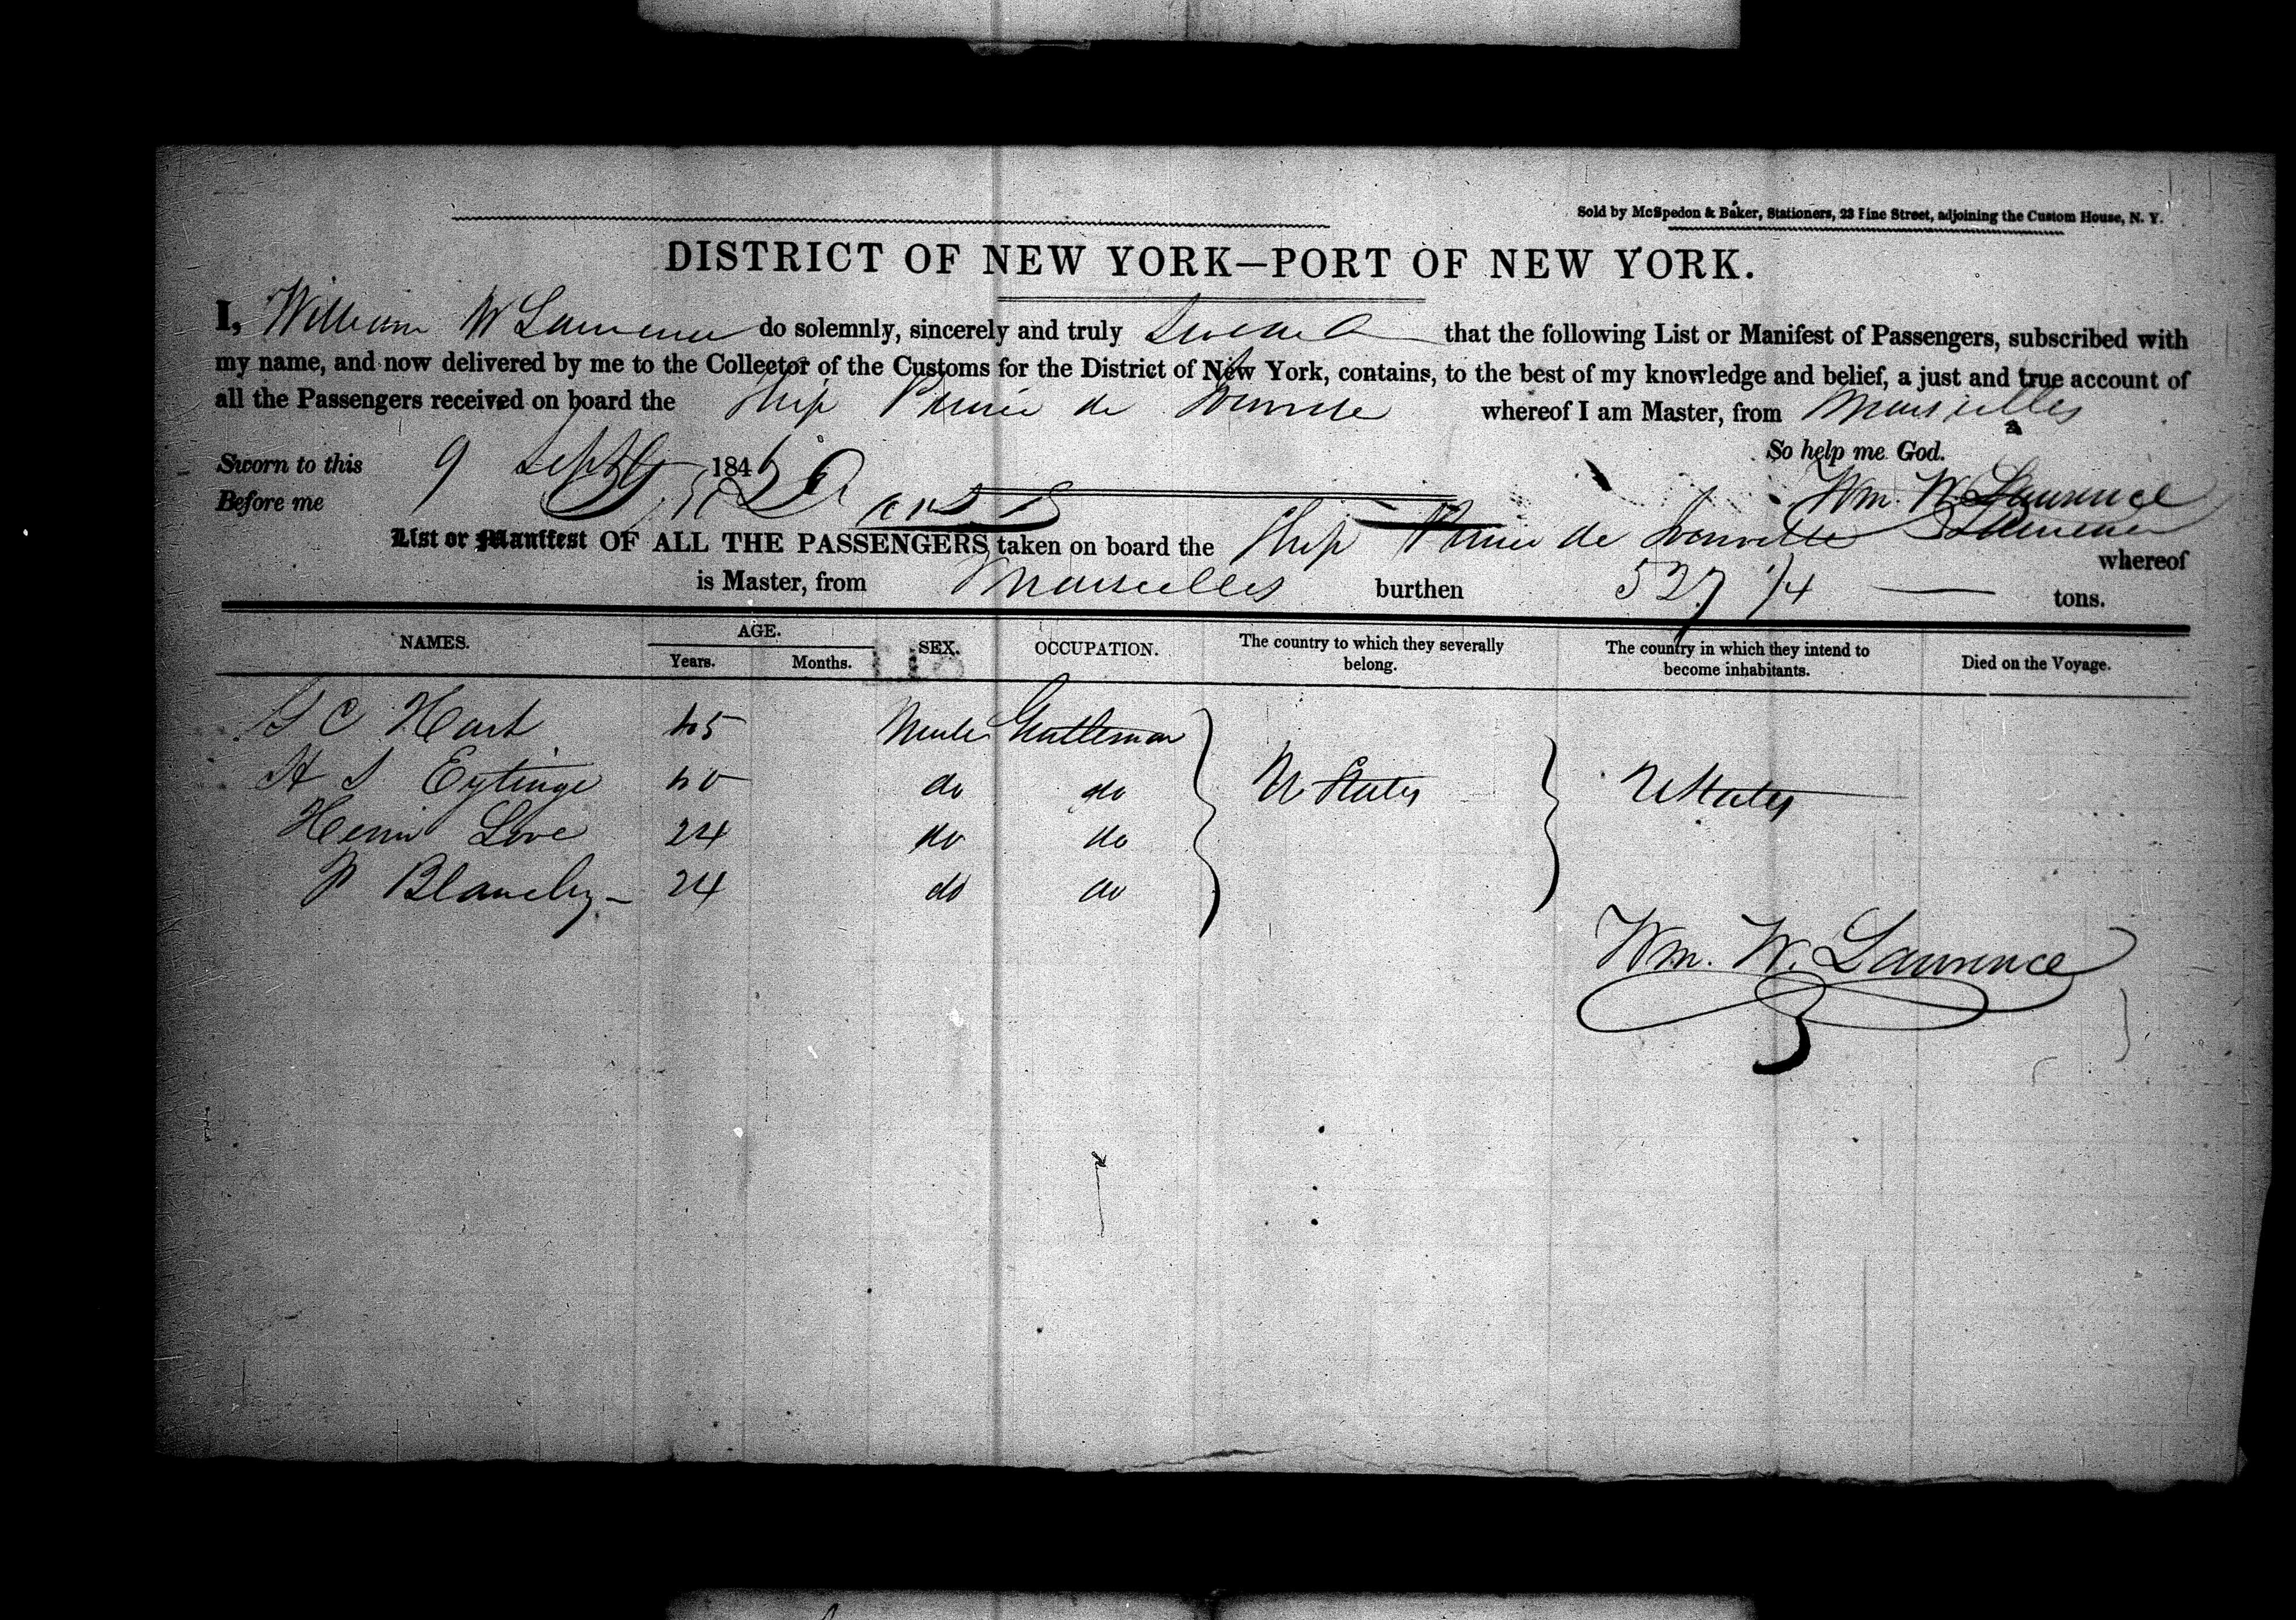 Sold by McSpedon & Baker, Stationers, 23 Pine Street, adjoining the Custom House, N. Y.
DISTRICT OF NEW YORK—PORT OF NEW YORK.
I, William W Lawrence do solemnly, sincerely and truly Swear that the following List or Manifest of Passengers, subscribed with
my name, and now delivered by me to the Collector of the Customs for the District of New York, contains, to the best of my knowledge and belief, a just and true account of
all the Passengers received on board the Ship Prince de Joinville whereof I am Master, from Marseilles
So help me God.
Sworn to this 9 Sept 1846
Wm. W. Lawrence
Before me
List or Manifest OF ALL THE PASSENGERS taken on board the Ship Prince de Joinville Lawrence whereof
is Master, from Marseilles burthen 527 1/4 tons.
NAMES. AGE. Years. Months. SEX. OCCUPATION. The country to which they severally belong. The country in which they intend to become inhabitants. Died on the Voyage.
S C Hart 45 Male Gentleman
H S Eytinge 40 do do U States U States
Henri Love 24 do do
P 24 do do
Wm. W. Lawrence